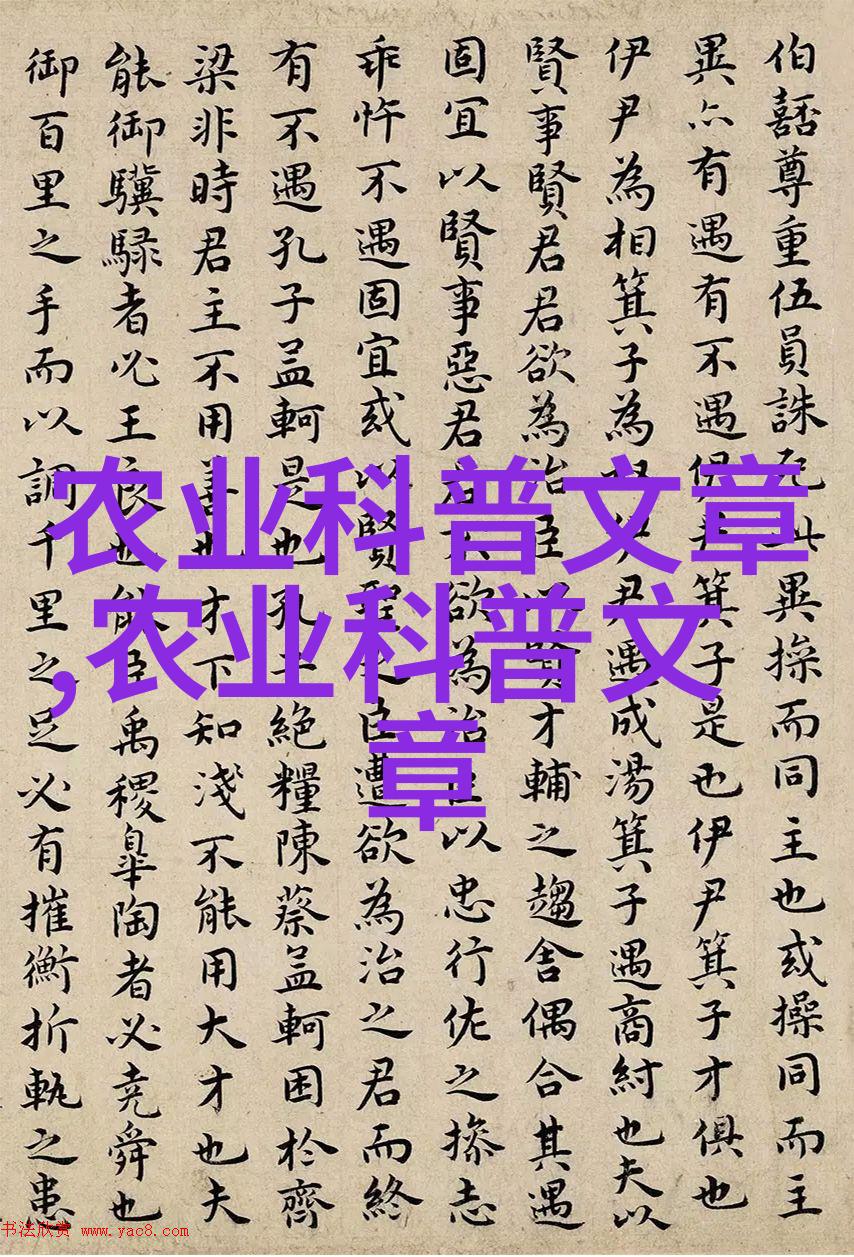 伯嚭尊重伍員誅死此異操而同主也或操同而主
異亦有遇有不遇伊尹箕子是也伊尹箕子才俱也
伊尹為相箕子為奴伊尹遇成湯箕子遇商紂也夫以
賢事賢君君欲為治臣以賢才輔之趨舍偶合其遇
固宜以賢事惡君君不欲為治臣以忠行佐之操志
乖忤不遇固宜或以賢聖之臣遭欲為治之君而終
有不遇孔子孟軻是也孔子絕糧陳蔡孟軻困於齊
梁非時君主不用善也才下知淺不能用大才也夫
能御驥騄者必王良也能臣禹稷皋陶者必堯舜也
御百里之手而以調千里之足必有摧衡折軌之患
农业科普文章
,农业科普文
章
书法欣赏 www.yac8.com